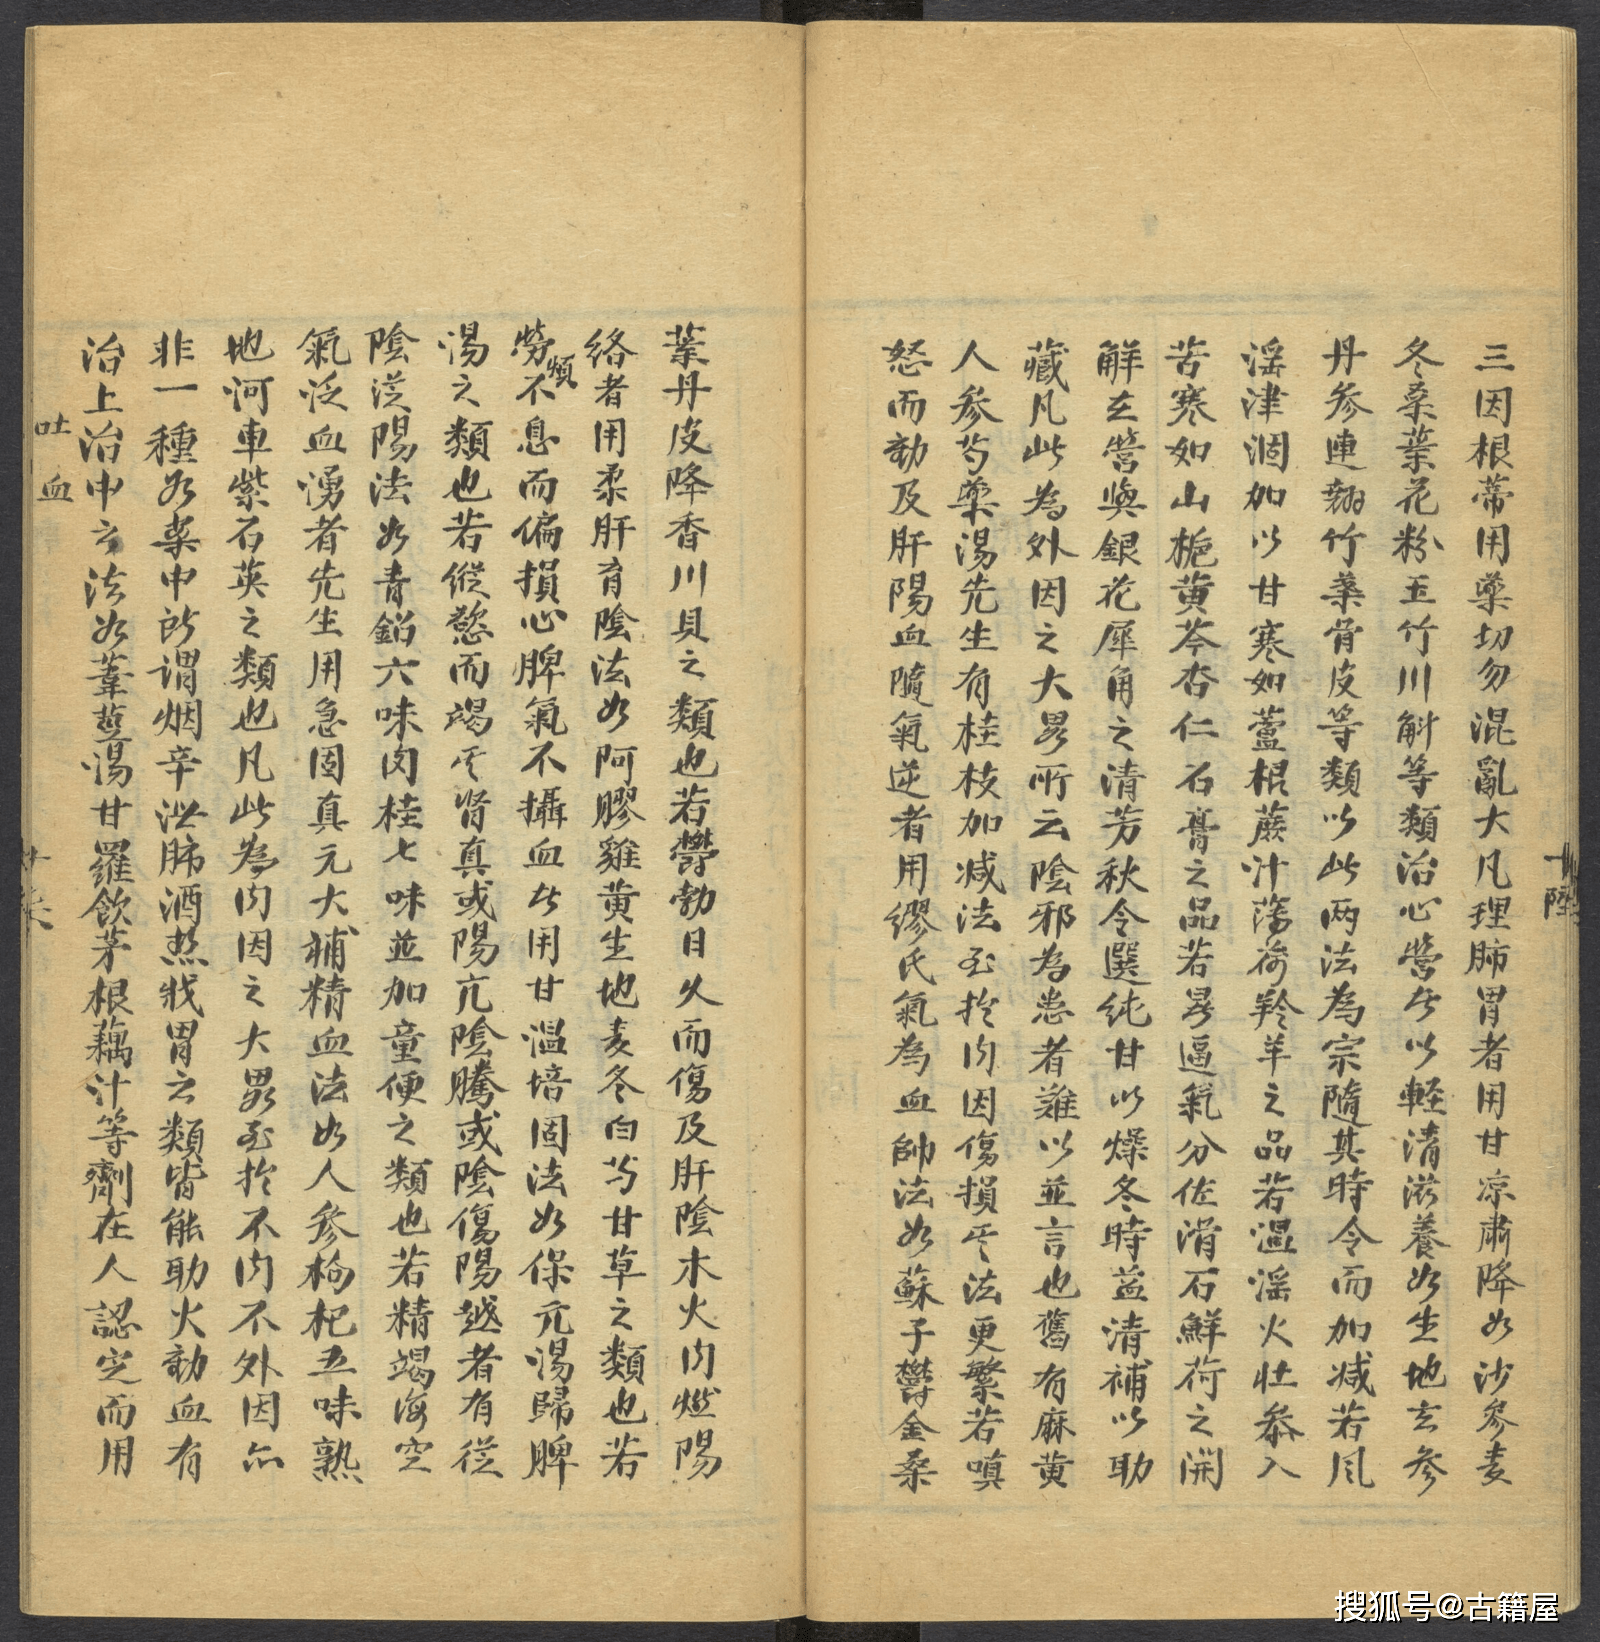 三因根蒂用藥切勿混亂大凡理肺胃者用甘凉肅降如沙參麦
冬桑葉花粉玉竹川斛等類治心營者以輕清滋養如生地玄參
丹參連翹竹葉骨皮等類以此两法為宗隨其時令而加减若風
淫津涸加以甘寒如蘆根蔗汁薄荷羚羊之品若温淫火壮叅入
苦寒如山梔黄芩杏仁石膏之品若暑逼氣分佐滑石鮮荷之開
觧在營與銀花犀角之清芳秋令選纯甘以燥冬時益清補以助
藏凡此為外因之大畧所云陰邪為患者難以並言也舊有麻黄
人參芍藥湯先生有桂枝加减法至扵内因傷損其法更繁若嗔
怒而動及肝陽血隨氣逆者用繆氏氣為血帥法如蘇子鬱金桑
葉丹皮降香川貝之類也若鬱勃日久而傷及肝陰木火内燃陽
絡者用柔肝育陰法如阿膠雞黄生地麦冬白芍甘草之類也若
勞煩不息而偏損心脾氣不攝血者用甘温培固法如保元湯歸脾
湯之類也若縱慾而竭其肾真或陽亢陰騰或陰傷陽越者有從
陰從陽法如青鉛六味肉桂七味並加童便之類也若精竭海空
氣泛血湧者先生用急固真元大補精血法如人參枸杞五味熟
地河車紫石英之類也凡此為内因之大畧至扵不内不外因亦
非一種如案中所謂烟辛泄肺酒熱戕胃之類皆能助火動血有
治上治中之法如葦莖湯甘羅飲茅根藕汁等劑在人認定而用
吐血
陸
搜狐号@古籍屋